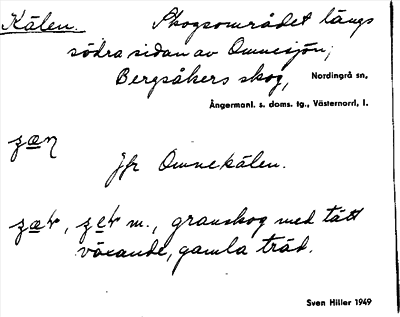 Kälen. Skogsområdet längs
södra sidan av Omnesjön;
Bergsåkers skog, Nordingrå sn,
Ångermanl. s. doms. tg., Västernorrl. l.
Jfr Omnekälen.
m., granskog med tätt
växande, gamla träd.
Sven Hiller 1949